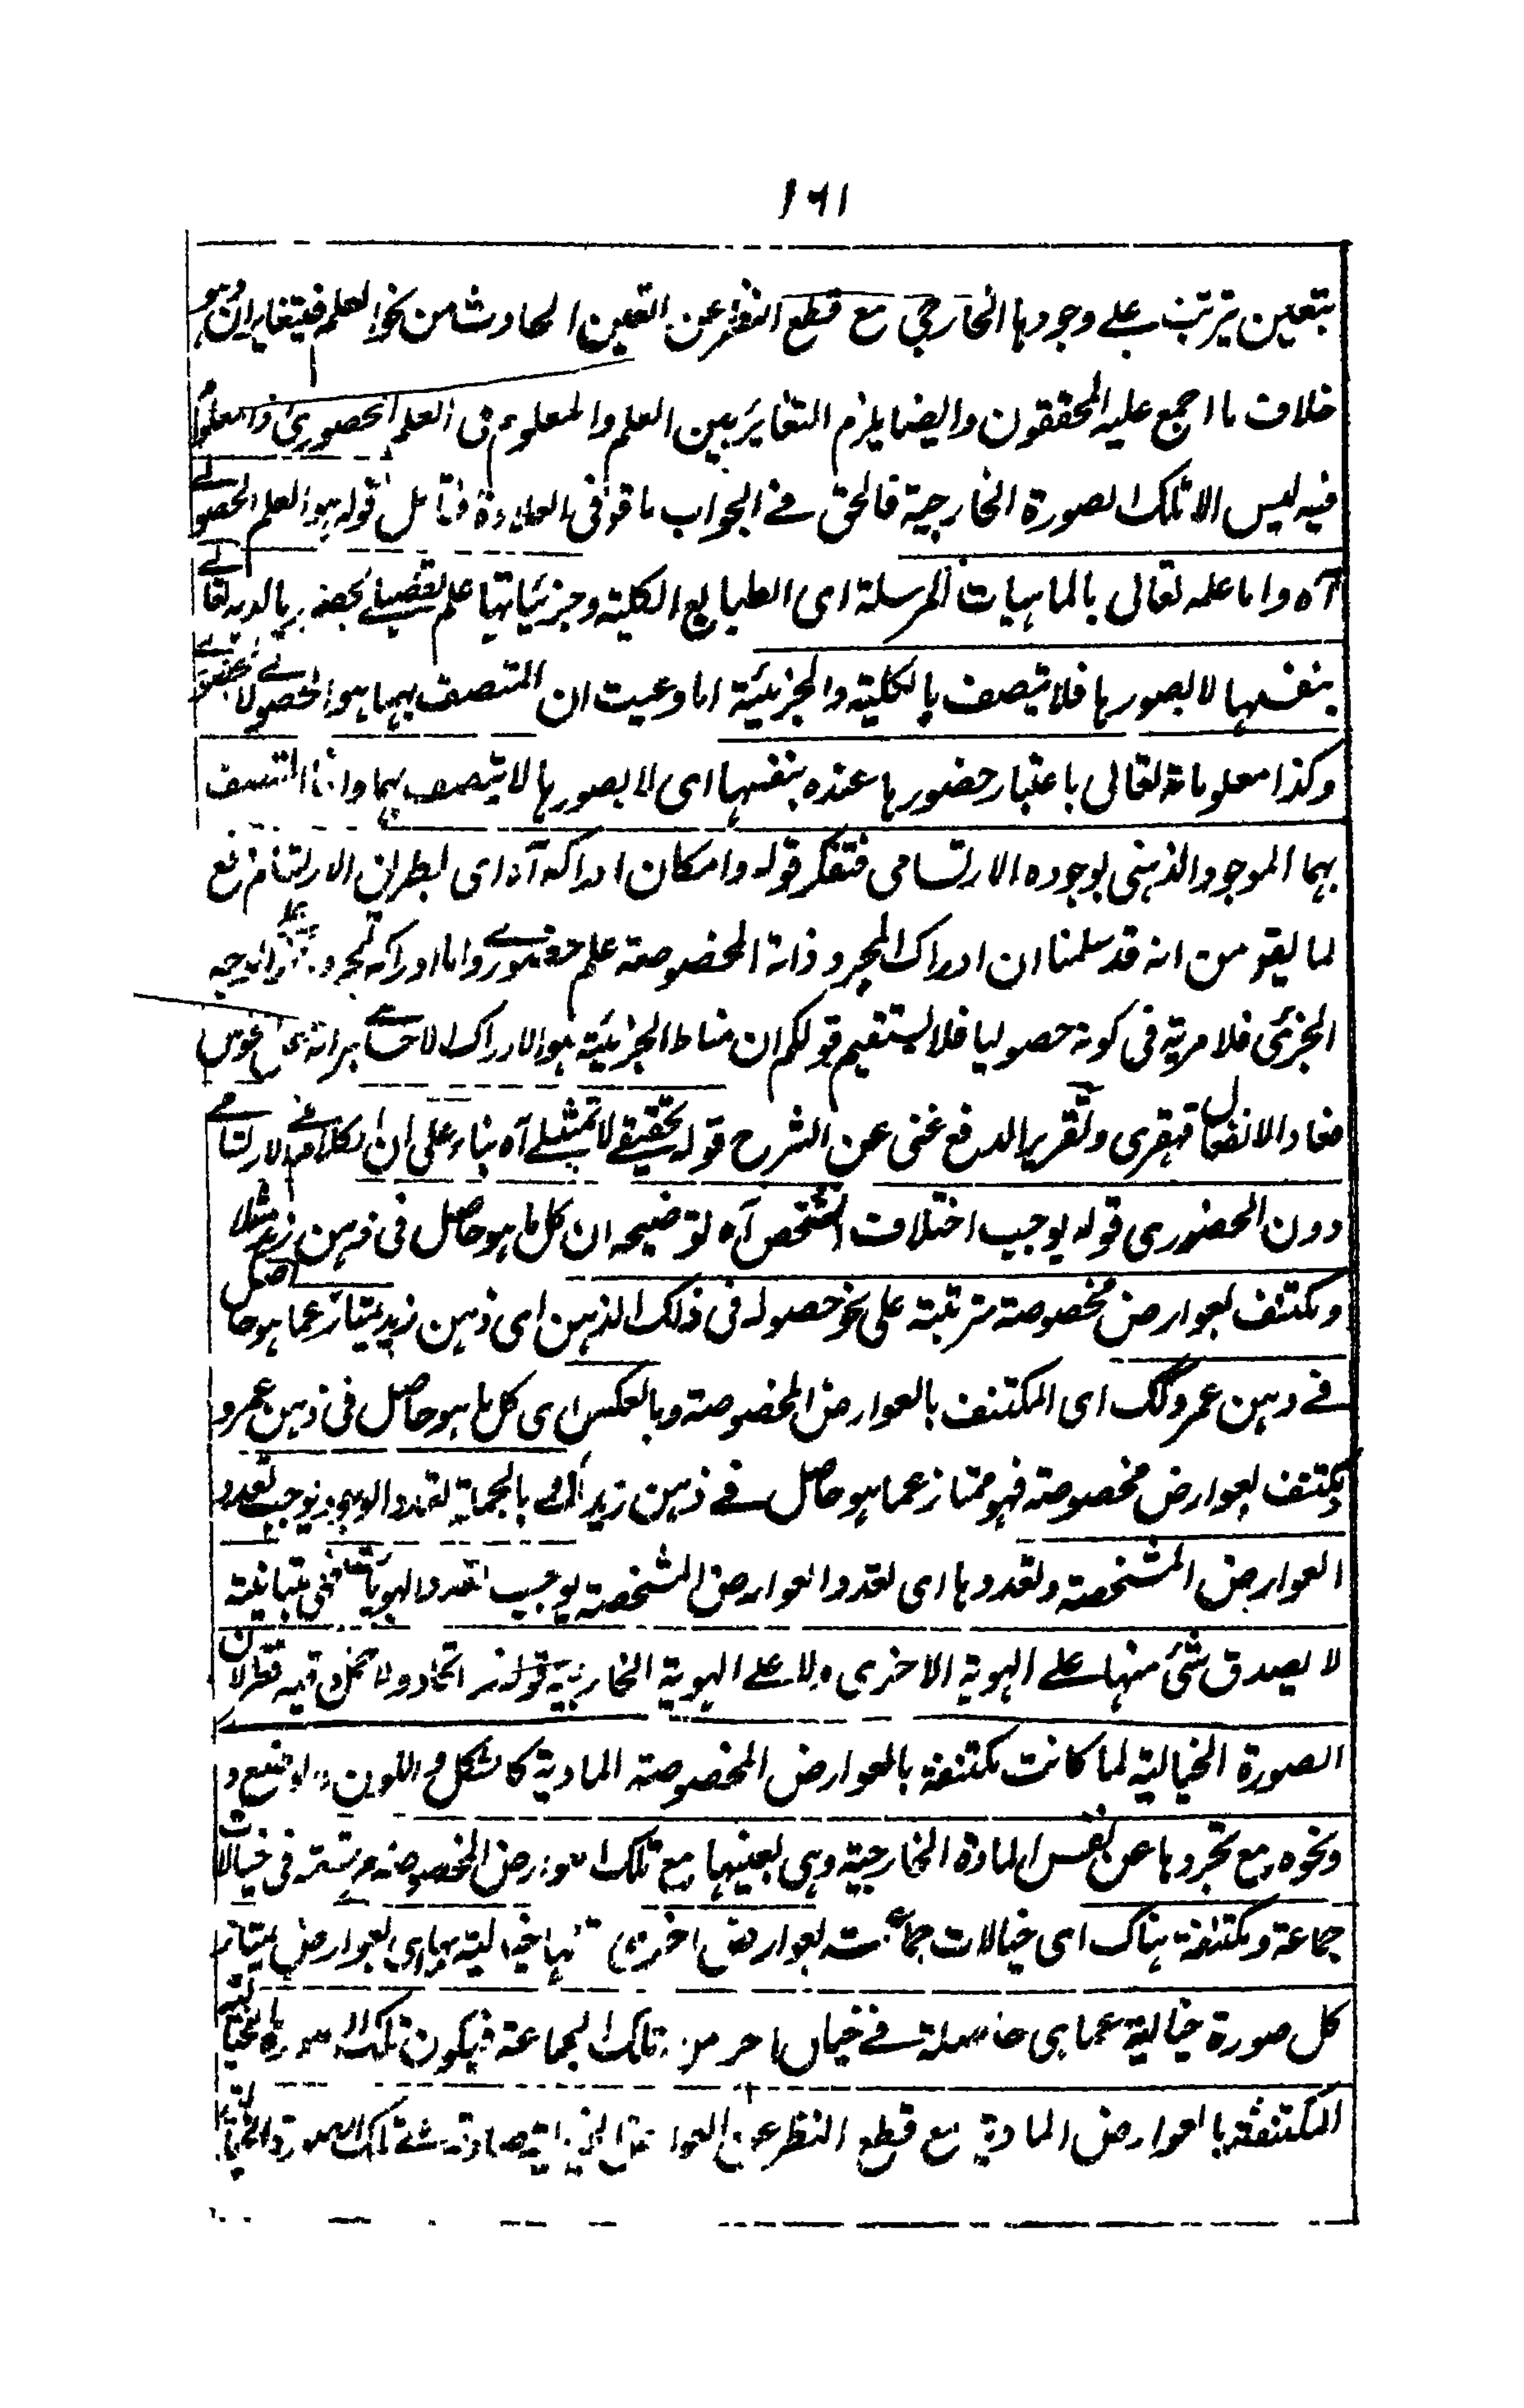 ١٦١
بتعين يترتب على وجودها الخارجي مع قطع النظر عن التعين الحادث من نحو العلم فيتغايران وهو
خلاف ما اجمع عليه المحققون وايضا يلزم التغاير بين العلم والمعلوم في العلم الحضوري والمعلوم
فيه ليس الا تلك الصورة الخارجية فالحق في الجواب ما قو في العلاوة فتامل قوله هو العلم الحصولي
آه واما علمه تعالى بالماهيات المرسلة اى الطبايع الكلية وجزئياتها علم تفصيلي بحضورها لديه تعالى
بنفسها لا بصورها فلا يتصف بالكلية والجزئية اما وعيت ان المتصف بهما هو الحصولي لا الحضوري
وكذا معلوماته تعالى باعتبار حضورها عنده بنفسها اى لا بصورها لا يتصف بهما وانما المتصف
بهما الموجود الذهني بوجوده الارتسامى فتفكر قوله وامكان ادراكه آه اى بطريق الارتسام دفع
لما يقو من انه قد سلمنا ان ادراك المجرد ذاته المخصوصة علم حضوري واما ادراكه لمجرد على الوجه
الجزئى فلا مرية في كونه حصوليا فلا يستقيم قولكم ان مناط الجزئية هو الادراك الاحساسي
قهقرى وتقرير الدفع غنى عن الشرح قوله تحقيقي لا تمثيلي آه بناء على ان الكلام في الارتسامي
دون الحضورى قوله يوجب اختلاف التشخص آه توضيحه ان كل ما هو حاصل في ذهن زيد مثلا
ومكتنف بعوارض مخصوصة مترتبة على نحو حصوله في ذلك الذهن اى ذهن زيد يمتاز عما هو حاصل
في ذهن عمرو كك اى المكتنف بالعوارض المخصوصة وبالعكس اى كل ما هو حاصل في ذهن عمرو
مكتنف بعوارض مخصوصة فهو ممتاز عما هو حاصل في ذهن زيد كك بالجملة تعدد الوجود يوجب تعدد
العوارض المشخصة وتعددها اى تعدد العوارض المشخصة يوجب تعدد الهويات فهي متبائنة
لا يصدق شئ منها على الهوية الاخرى ولا على الهوية الخارجية قوله اتحاد ولا تخلو فيه نظر لان
الصورة الخيالية لما كانت مكتنفة بالعوارض المخصوصة المادية كالشكل واللون والوضع و
ونحوه مع تجردها عن نفس المادة الخارجية وهى بعينها مع تلك العوارض المخصوصة مرتسمة في خيالات
جماعة ومكتنفة هناك اى خيالات جماعة بعوارض اخرى خيالية بها اى بالعوارض يمتاز
كل صورة خيالية عما هي حاصلة في خيال آخر من تلك الجماعة فيكون تلك الصورة الخيالية
المكتنفة بالعوارض المادية مع قطع النظر عن العوارض الخيالية صادقة على تلك الصورة الخيالية